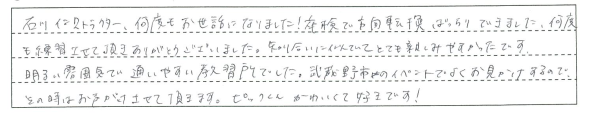 石川インストラクター、何度もお世話になりました!卒検で方向転換ばっちりできました、何度
も練習させて頂きありがとうございました。知り合いに似ていてとても親しみやすかったです
明るい雰囲気で通いやすい教習所でした。武蔵野市のイベントでよくお見かけするので、
その時はお声がけさせて頂きます。ピックくんかわいくて好きです!